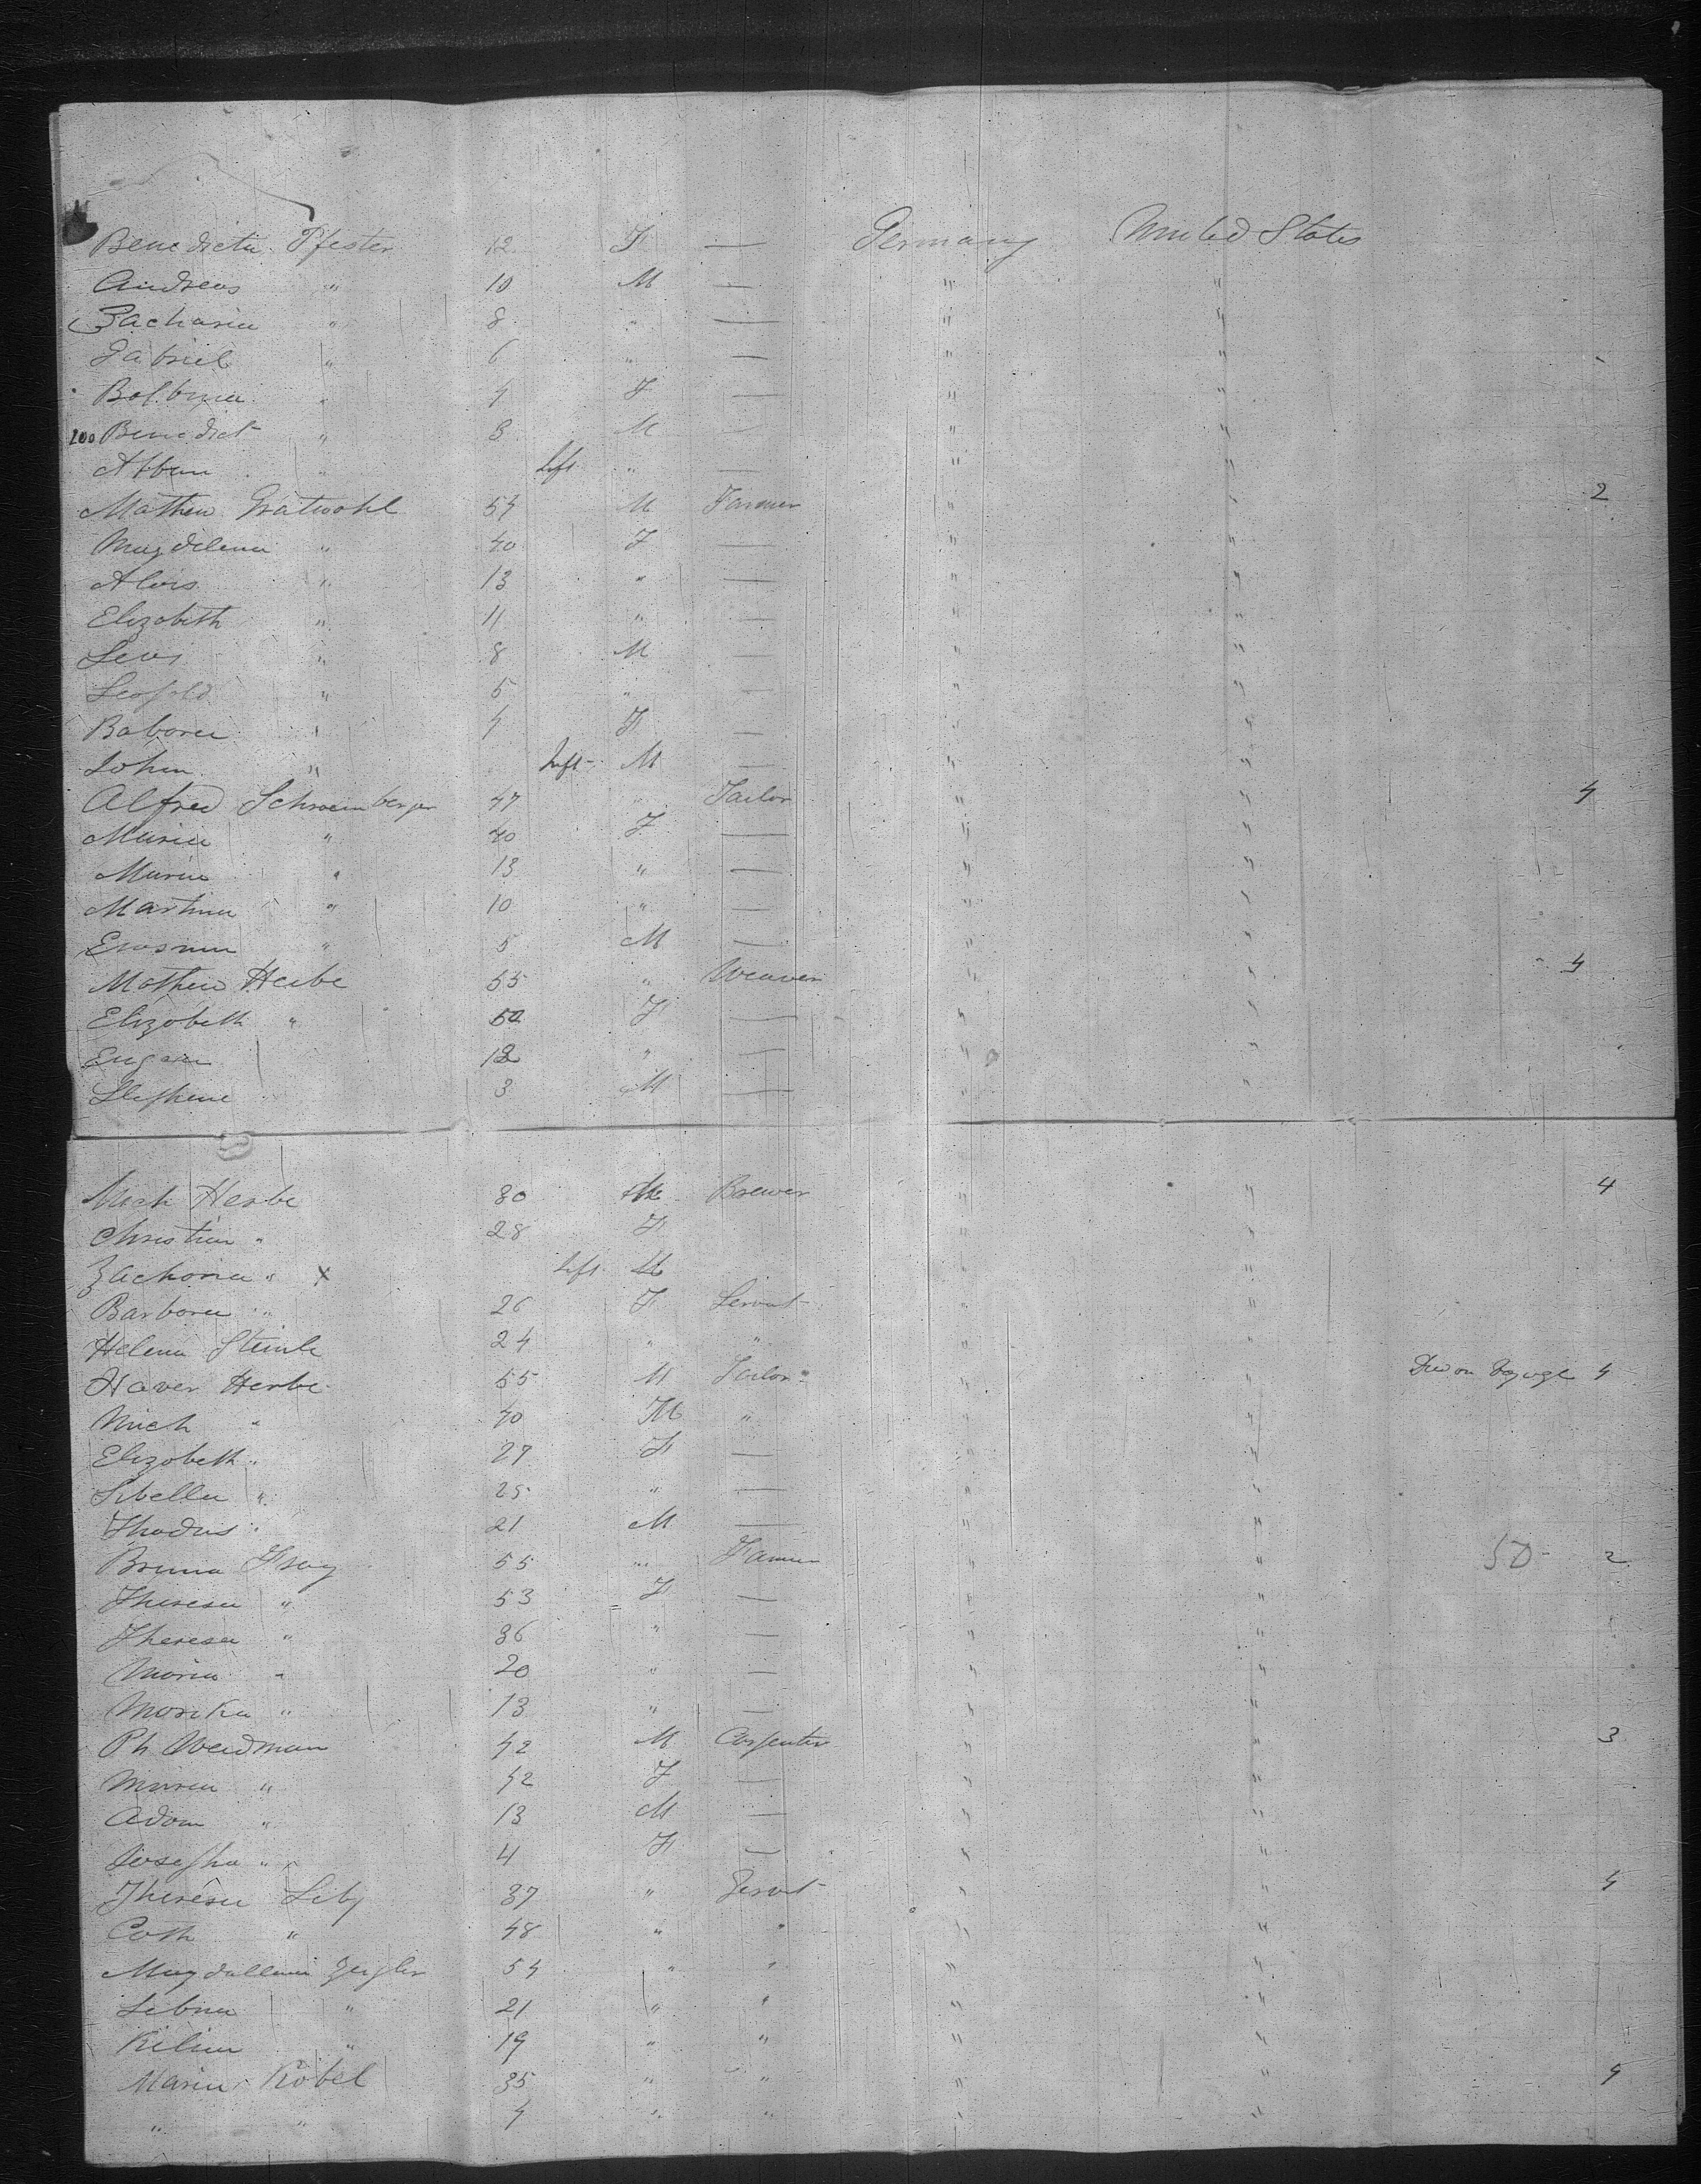 Benedicta Pfester 12 F — Germany United States
Andreas " 10 M — " "
Zacharia " 8 " — " "
Gabriel " 6 " — " "
Balbina " 4 F — " "
200 Benedict " 3 M — " "
Alban " Inft " — " "
Mathew Gratwohl 54 M Farmer " " 2
Magdelena " 40 F — " "
Alois " 13 " — " "
Elizabeth " 11 " — " "
" 8 M — " "
Leopold " 5 " — " "
Babara " 4 F — " "
John " Inft M — " "
Alfred Schweinberger 47 " Tailor " " 4
Maria " 40 F — " "
Maria " 13 " — " "
Martina " 10 " — " "
" 5 M — " "
Mathew Herbe 55 " Weaver " " 4
Elizabeth " 50 F — " "
" — " "
Stephene 3 M — " "
Mich Herbe 30 M Brewer " " 4
Christian " 28 F " "
Zacharia " X Inft M " "
Barbara " 26 F Servt " "
Helena Steinle 24 " " " "
Xaver Herbe 55 M Tailor " " Died on Voyage 4
Mich " 40 M " " "
Elizabeth " 27 F — " "
Sibella " 25 " — " "
" 21 M — " "
Bruna Frey 55 " Farmer " " 50 2
Theresa " 53 F — " "
Theresa " 36 " — " "
Maria " 20 " — " "
Monika " 13 " — " "
Ph Weidman 42 M Carpenter " " 3
Maria " 42 F — " "
Adam " 13 M — " "
Josepha " 4 F — " "
Theresa 37 " Servt " " 4
Cath " 48 " " " "
Magdallena Zeigler 54 " " " "
" 21 " " " "
Kilian " 19 " " " "
Maria Kobel 35 " " " " 4
" " 4 " " " "